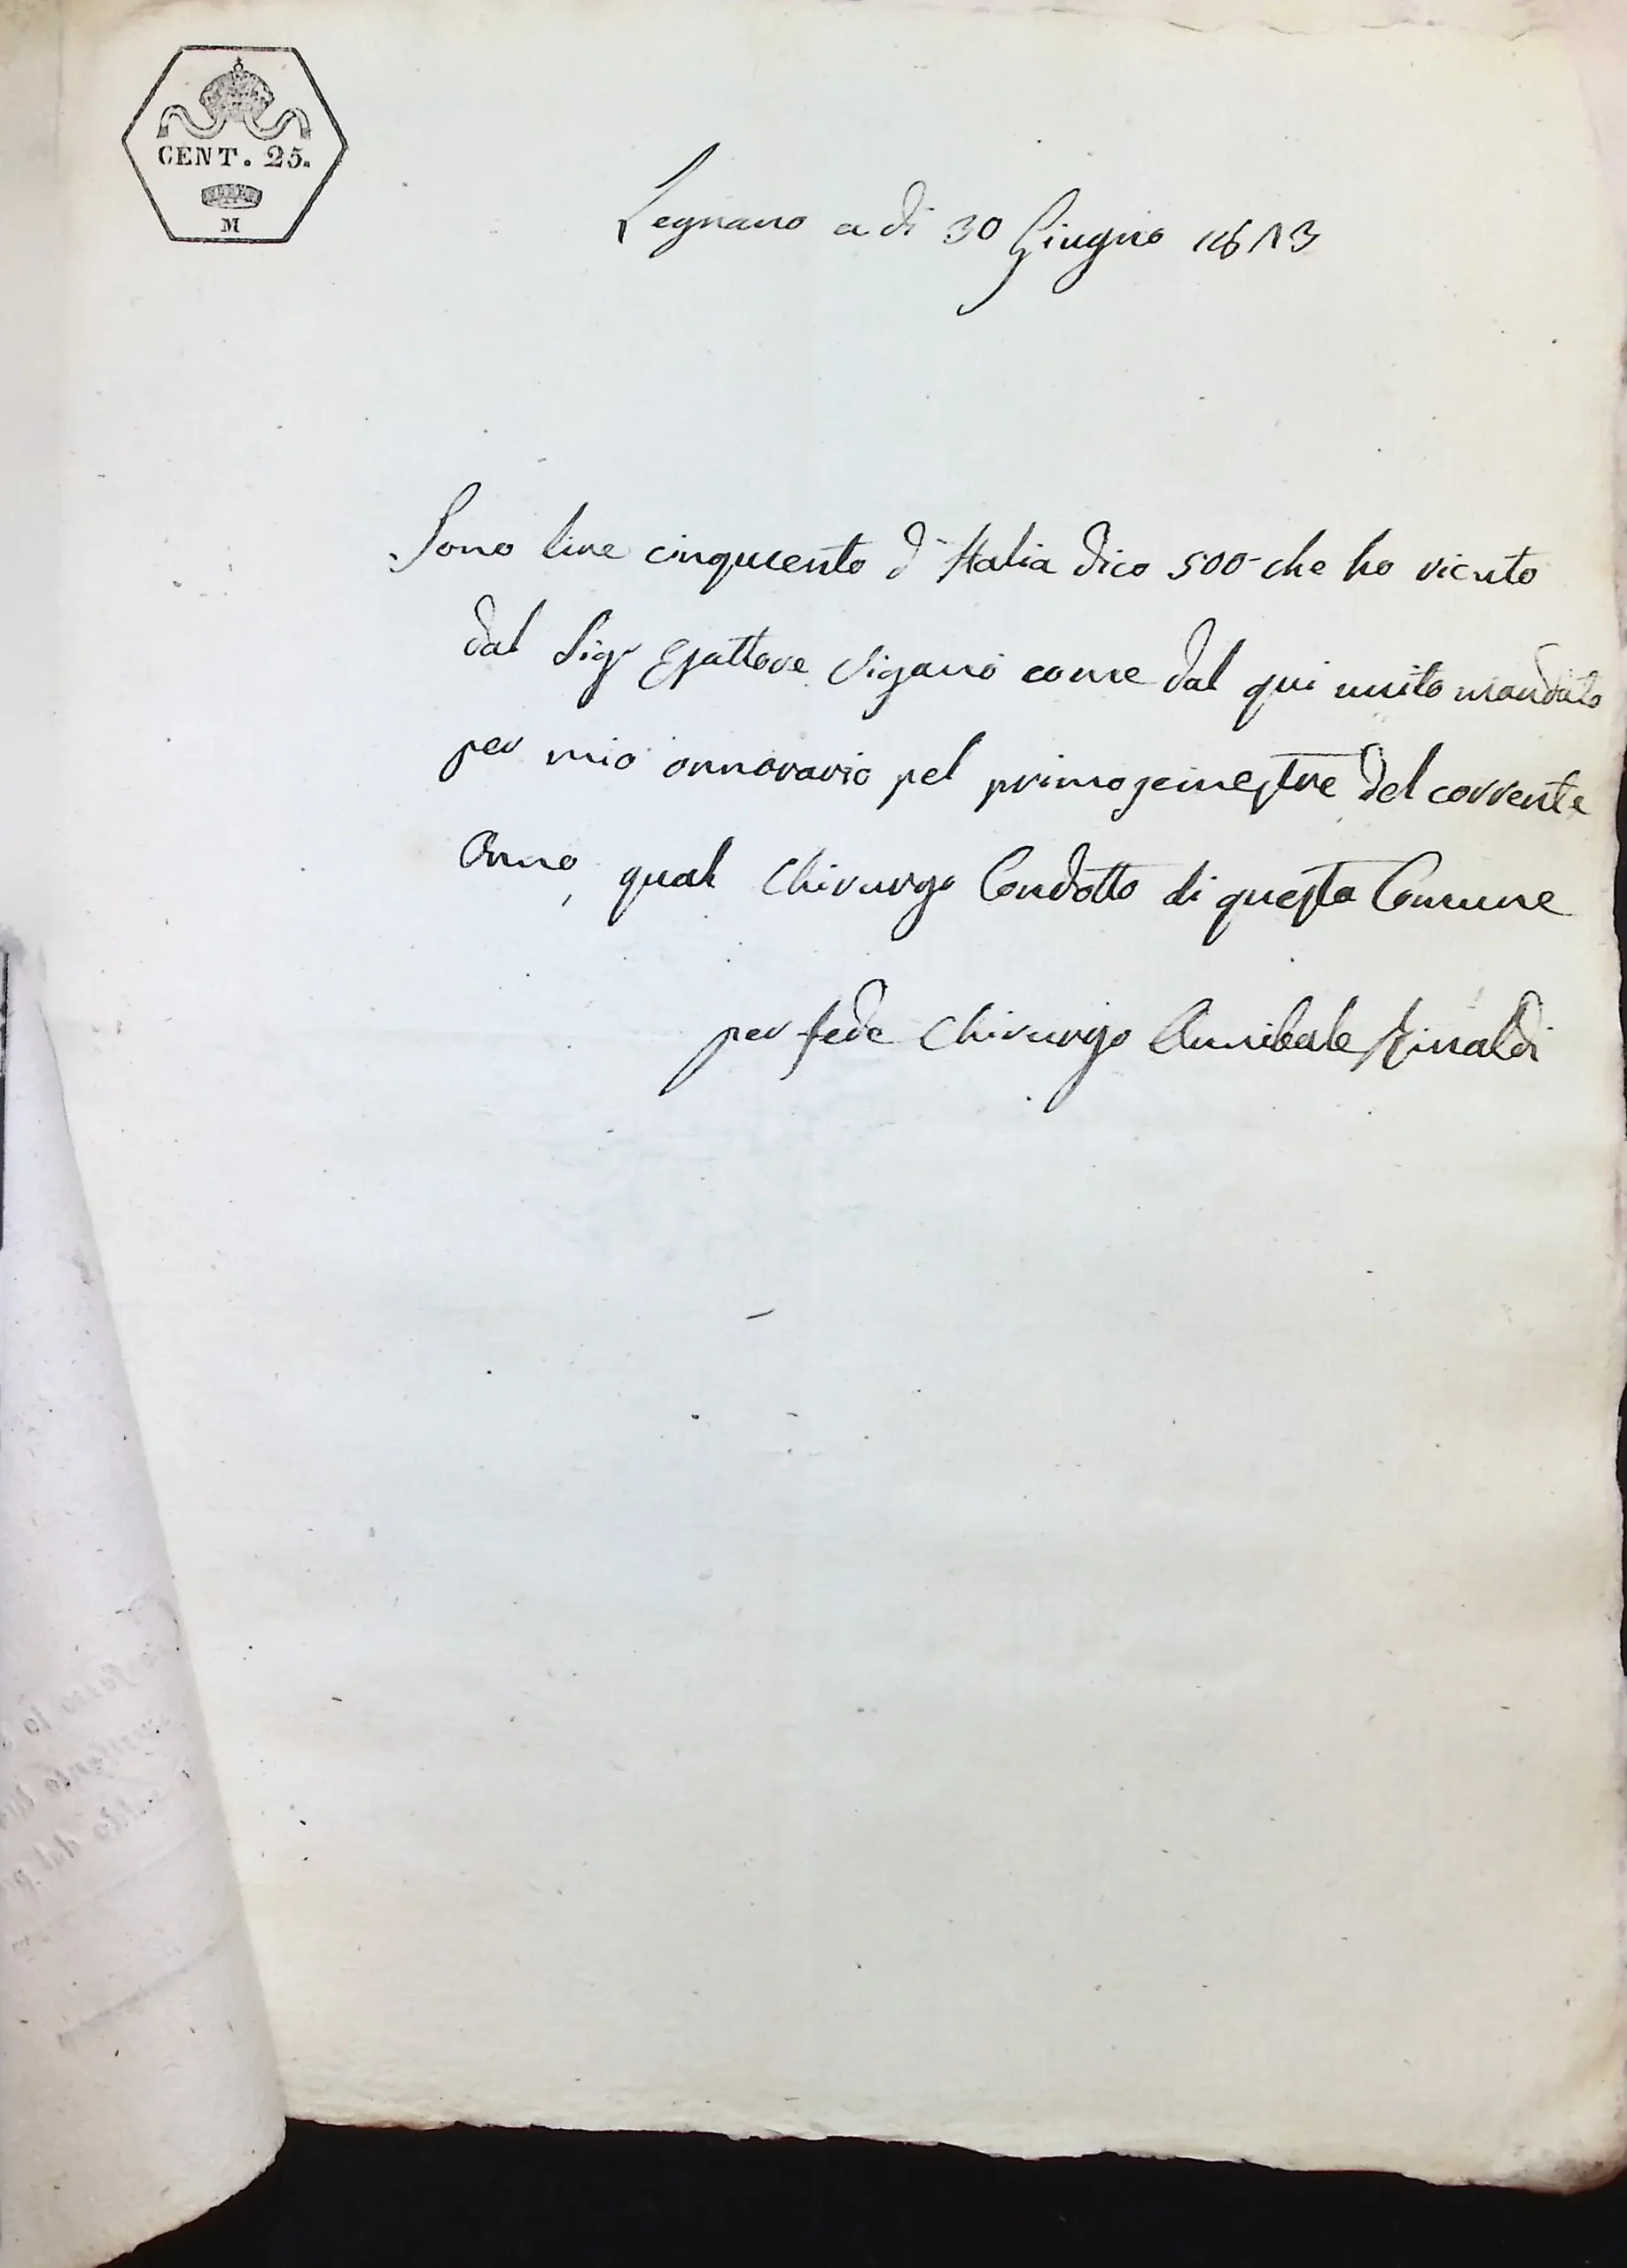 CENT. 25.
M
Legnano a di 30 Giugno 1813
Sono lire cinquecento d'Italia dico 500- che ho riceuto
dal Sigr Esattore Viganò come dal qui unito mandato
per mio onnorario pel primo semestre del corrente
Anno, qual Chirurgo Condotto di questa Comune
per fede Chirurgo Annibale Rinaldi